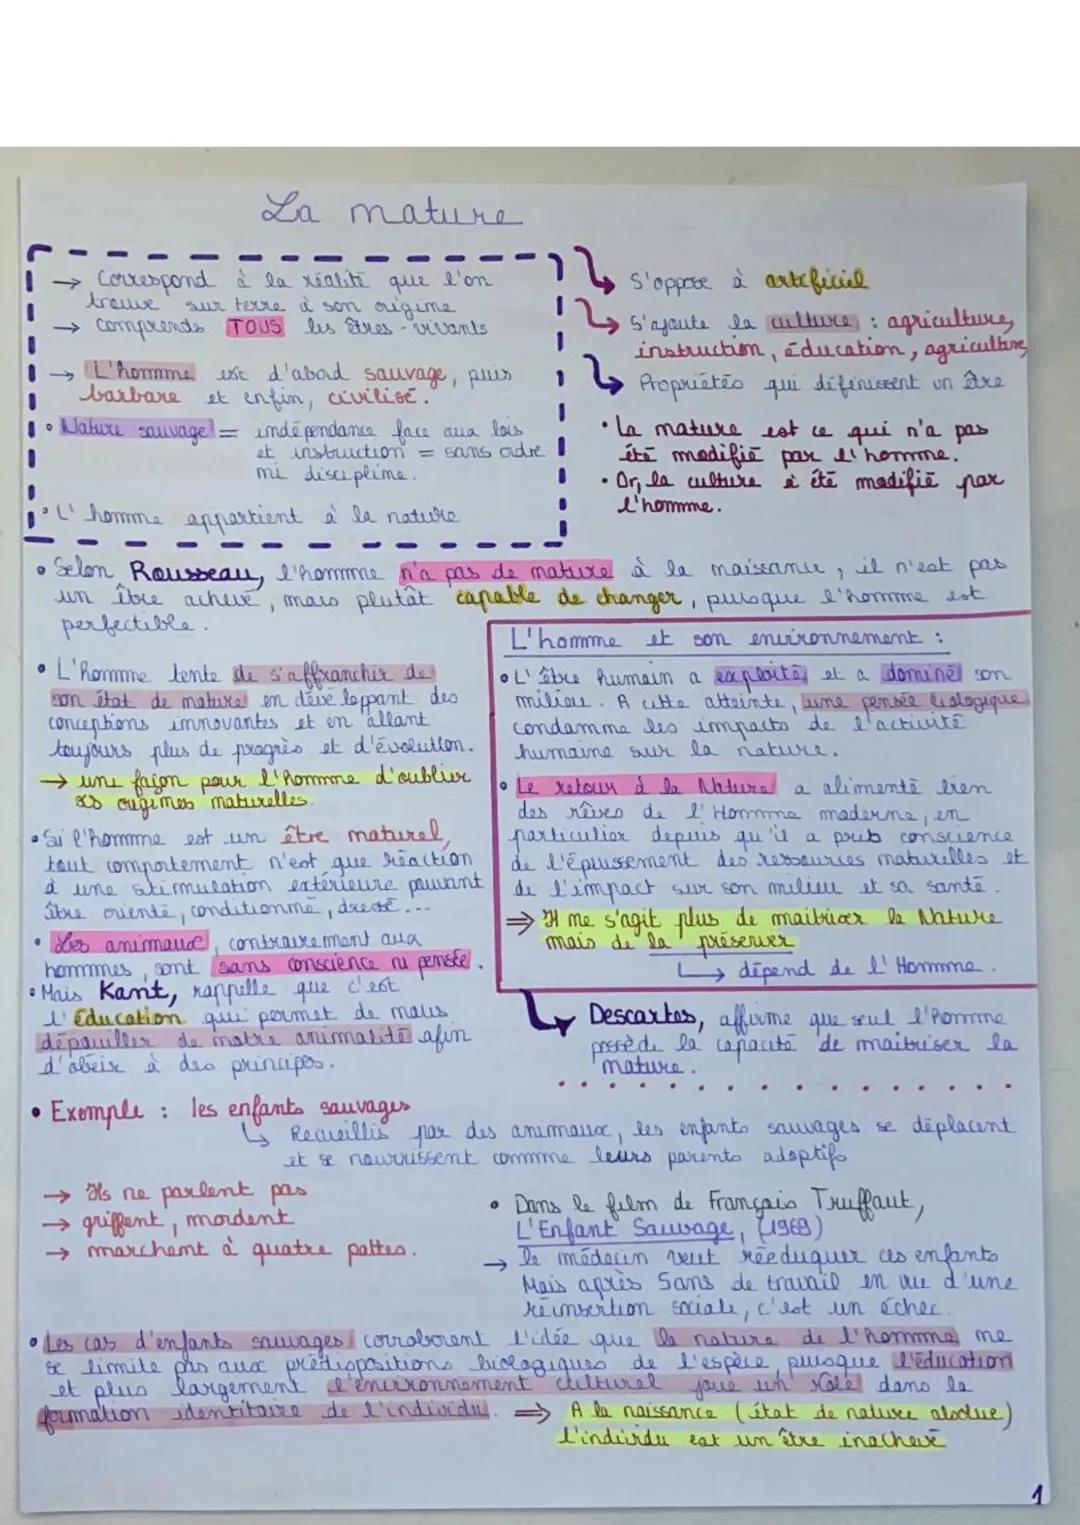 La nature
→ Correspond à la réalité que l'on
trouve sur terre à son origine
→ Comprends TOUS les êtres-vivants
→ L'homme est d'abord sauvage, puis
barbare et enfin, civilisé.
• Nature sauvage = indépendance face aux lois
et instruction = sans ordre
ni discipline.
• L'homme appartient à la nature
S'oppose à artificiel
S'ajoute la culture : agriculture,
instruction, éducation, agriculture
Propriétés qui définissent un être
• La nature est ce qui n'a pas
été modifié par l'homme.
• Or, la culture à été modifié par
l'homme.
• Selon Rousseau, l'homme n'a pas de nature à la naissance, il n'est pas
un être achevé, mais plutôt capable de changer, puisque l'homme est
perfectible.
• L'Homme tente de s'affranchir de
son état de nature en développant des
conceptions innovantes et en allant
toujours plus de progrès et d'évolution.
→ une façon pour l'Homme d'oublier
ses origines naturelles.
• Si l'homme est un être naturel,
tout comportement n'est que réaction
à une stimulation extérieure pouvant
être orienté, conditionné, dressé...
• Les animaux, contrairement aux
hommes, sont sans conscience ni pensée.
• Mais Kant, rappelle que c'est
l'éducation qui permet de nous
dépouiller de notre animalité afin
d'obéir à des principes.
L'homme et son environnement :
• L'être humain a exploité et a dominé son
milieu. A cette atteinte, une pensée écologique
condamne les impacts de l'activité
humaine sur la nature.
• Le retour à la Nature a alimenté bien
des rêves de l'Homme moderne, en
particulier depuis qu'il a pris conscience
de l'épuisement des ressources naturelles et
de l'impact sur son milieu et sa santé.
⇒ Il ne s'agit plus de maitriser la Nature
mais de la préserver
↳ dépend de l'Homme.
Descartes, affirme que seul l'homme
possède la capacité de maitriser la
nature.
• Exemple : les enfants sauvages
↳ Recueillis par des animaux, les enfants sauvages se déplacent
et se nourrissent comme leurs parents adoptifs
→ Ils ne parlent pas
→ griffent, mordent
→ marchent à quatre pattes.
• Dans le film de François Truffaut,
L'Enfant Sauvage, (1969)
→ le médecin veut rééduquer ces enfants
Mais après 5ans de travail en vue d'une
réinsertion sociale, c'est un échec.
• Les cas d'enfants sauvages corroborent l'idée que la nature de l'homme ne
se limite pas aux prédispositions biologiques de l'espèce, puisque l'éducation
et plus largement l'environnement culturel joue un rôle dans la
formation identitaire de l'individu. ⇒ A la naissance (état de nature absolue)
l'individu est un être inachevé
1